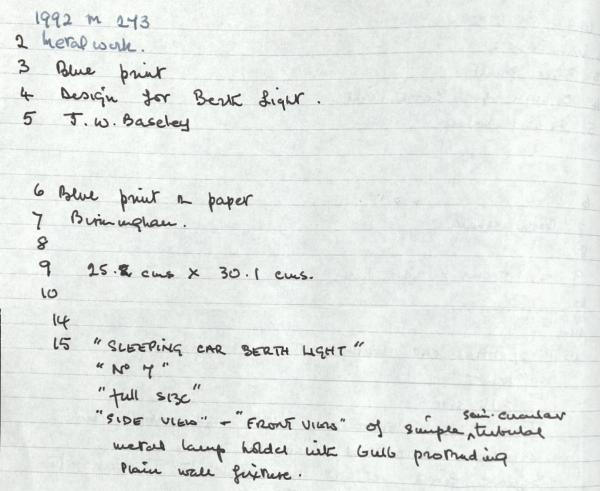 1992 M 243
2 Metalwork.
3 Blue print
4 Design for Berth Light.
5 J. W. Baseley
6 Blue print on paper
7 Birmingham.
8
9 25.2 cms × 30.1 cms.
10
14
15 "SLEEPING CAR BERTH LIGHT"
"No 7"
"full SIZE"
"SIDE VIEW" - "FRONT VIEW" of simple, semi-circular tubular
metal lamp holder with bulb protruding
Plain wall fixture.